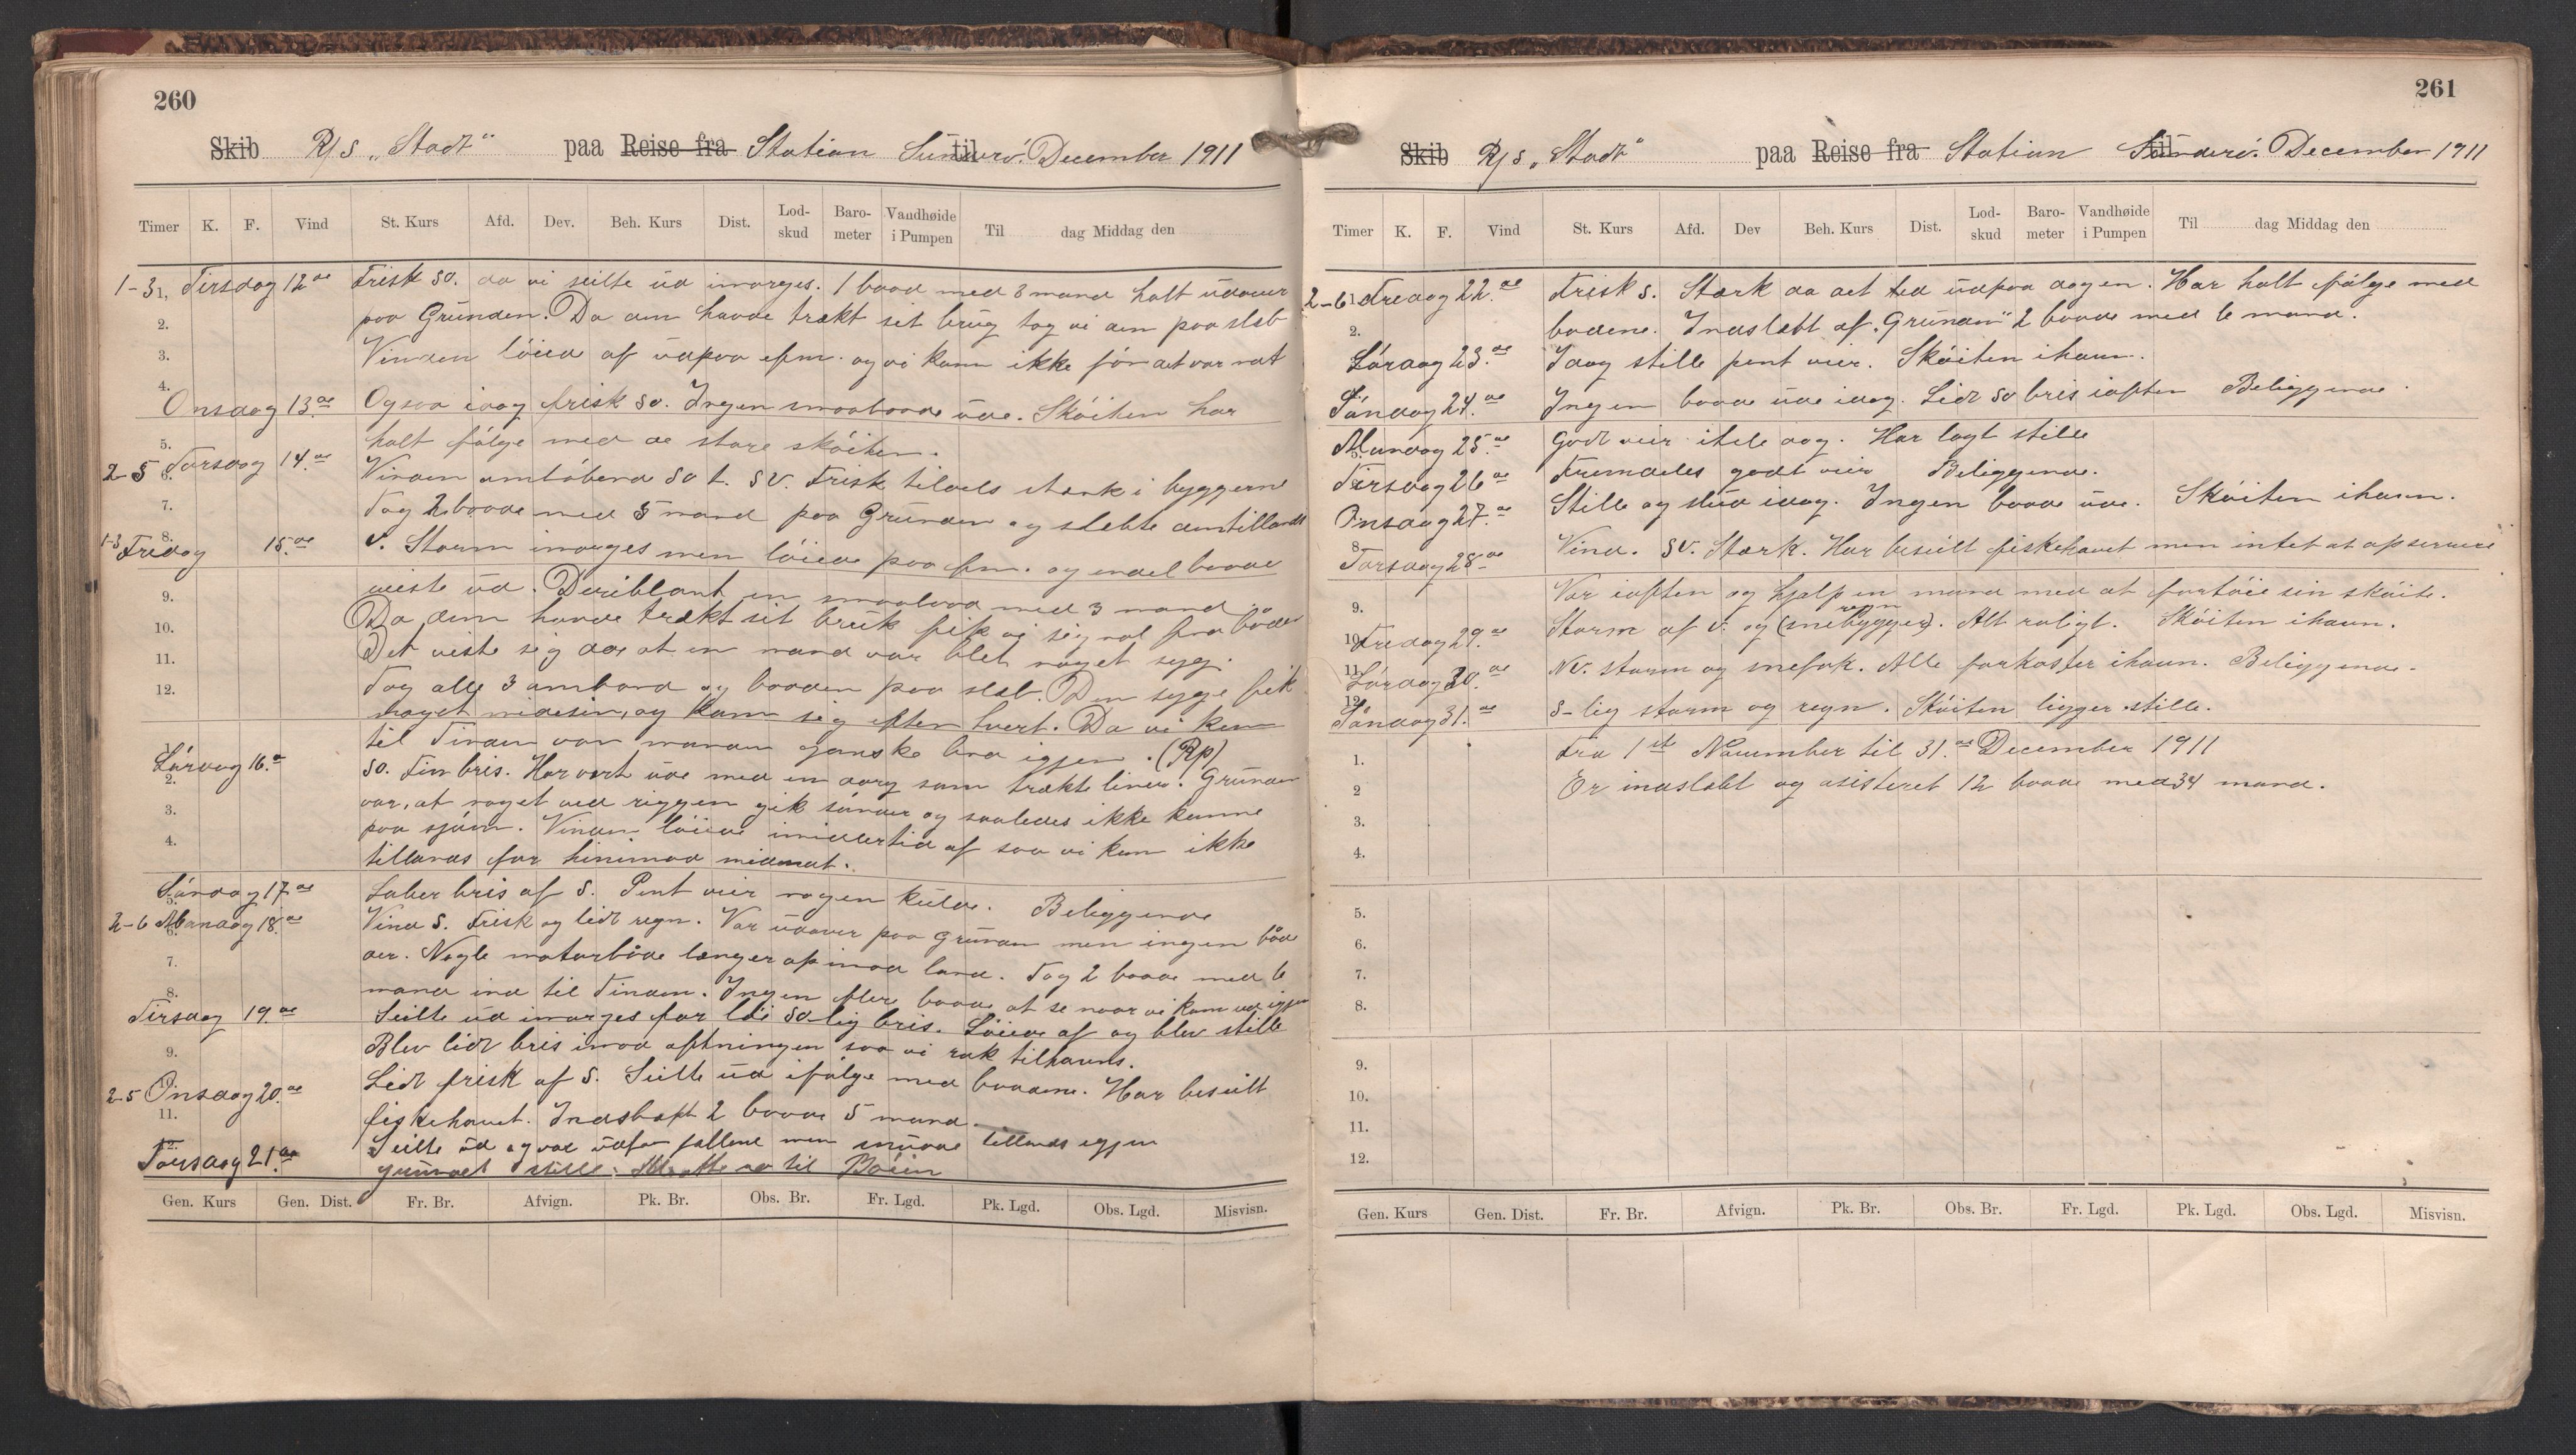 260
Skib R/S „Stadt" paa Reise fra Station Sunderö. til December 1911
Timer K. F. Vind St. Kurs Afd. Dev. Beh. Kurs Dist. Lod-skud Baro-meter Vandhøide i Pumpen Til dag Middag den
1-3 1. Tirsdag 12de Frisk so. da vi seilte ud imorges. 1 baad med 3 mand halt udover
2. paa Grunden. Da dem havde trækt sit brug tog vi dem paa slæb
3. Vinden löied af udpaa efm. og vi kom ikke för det var nat
4. Onsdag 13de Ogsaa idag frisk so. Ingen smaabaade ude. Sköiten har
5. halt fölge med de store sköiter.
2-5 6. Torsdag 14de Vinden omlöbend so t. sv. Frisk tildels stærk i byggerne
7. Tog 2 baade med 5 mand paa Grunden og slæbte dem tillands
1-3 8. Fredag 15de v. Storm imorges men löiede paa fm. og endel baade
9. reiste ud. Deriblant en smaabaad med 3 mand
10. Da dem havde trækt sit bruk fik vi signal fra båden
11. Det viste sig da at en mand var blet noget syg.
12. Tog alle 3 ombord og baaden paa slæb. Den syge fik
noget midesin, og kom sig efter hvert. Da vi kom
1. til Tinden var manden ganske bra igjen. (Rp)
Lördag 16de 2. So. Fin bris. Har vært ude med en dorg som trækte liner. Grunden
3. var, at noget ved riggen gik sönder og saaledes ikke kunne
4. paa sjöen. Vinden löiede imidlertid af saa vi kom ikke
tillands for henimod midnat.
5. Söndag 17de Laber bris af S. Pent veir nogen kulde. Beliggende
2-6 6. Mandag 18de Vind S. Frisk og lidt regn. Var udover paa grunden men ingen båd
7. der. Nogle motorbåde længer op imod land. Tog 2 baade med 6
8. mand ind til Tinden. Ingen flere baade at se naar vi kom ud igjen
Tirsdag 19de Seilte ud imorges for löi so-lig bris. Löiede af og blev stille
9. Blev lidt bris imod aftningen saa vi rak tilhavns.
2-5 10. Onsdag 20de Lidt frisk af S. Seilte ud ifölge med baadene. Har beseilt
11. fiskehavet. Indslæpt 2 baade 5 mand.
12. Torsdag 21de Seilte ud og var udfor fallene men snudde tillands igjen
grundet stille.
Gen. Kurs Gen. Dist. Fr. Br. Afvign. Pk. Br. Obs. Br. Fr. Lgd. Pk. Lgd. Obs. Lgd. Misvisn.
261
Skib R/S „Stadt" paa Reise fra Station Sunderö. til December 1911
Timer K. F. Vind St. Kurs Afd. Dev Beh. Kurs Dist. Lod-skud Baro-meter Vandhøide i Pumpen Til dag Middag den
2-6 1. Fredag 22de Frisk S. Stærk da det led udpaa dagen. Har halt fölge med
2. badene. Indslæbt af „Grunden" 2 baade med 6 mand.
Lördag 23de Idag stille pent veir. Sköiten ihavn.
Söndag 24de Ingen baade ude idag. Lidt so bris iaften Beliggende.
Mandag 25de Godt veir ihele dag. Har lagt stille
Tirsdag 26de Fremdeles godt veir Beliggende.
Onsdag 27de Stille og slud idag. Ingen baade ude. Sköiten ihavn.
8. Torsdag 28de Vind. sv. Stærk. Har beseilt fiskehavet men intet at opservere
9. Var iaften og hjalp en mand med at fortöie sin sköite.
10. Fredag 29de Storm af v. og (snebygger) regn. Alt roligt. Sköiten ihavn.
11. Lördag 30de Nv. storm og snefok. Alle farkoster ihavn. Beliggende.
12. Söndag 31de S-lig storm og regn. Sköiten ligger stille.
1. Fra 1ste November til 31de December 1911
2 Er indslæbt og asisteret 12 baade med 34 mand.
3.
4.
5.
6.
7.
8.
9.
10.
11.
12.
Gen. Kurs Gen. Dist. Fr. Br. Afvign. Pk. Br. Obs. Br. Fr. Lgd. Pk. Lgd. Obs. Lgd. Misvisn.